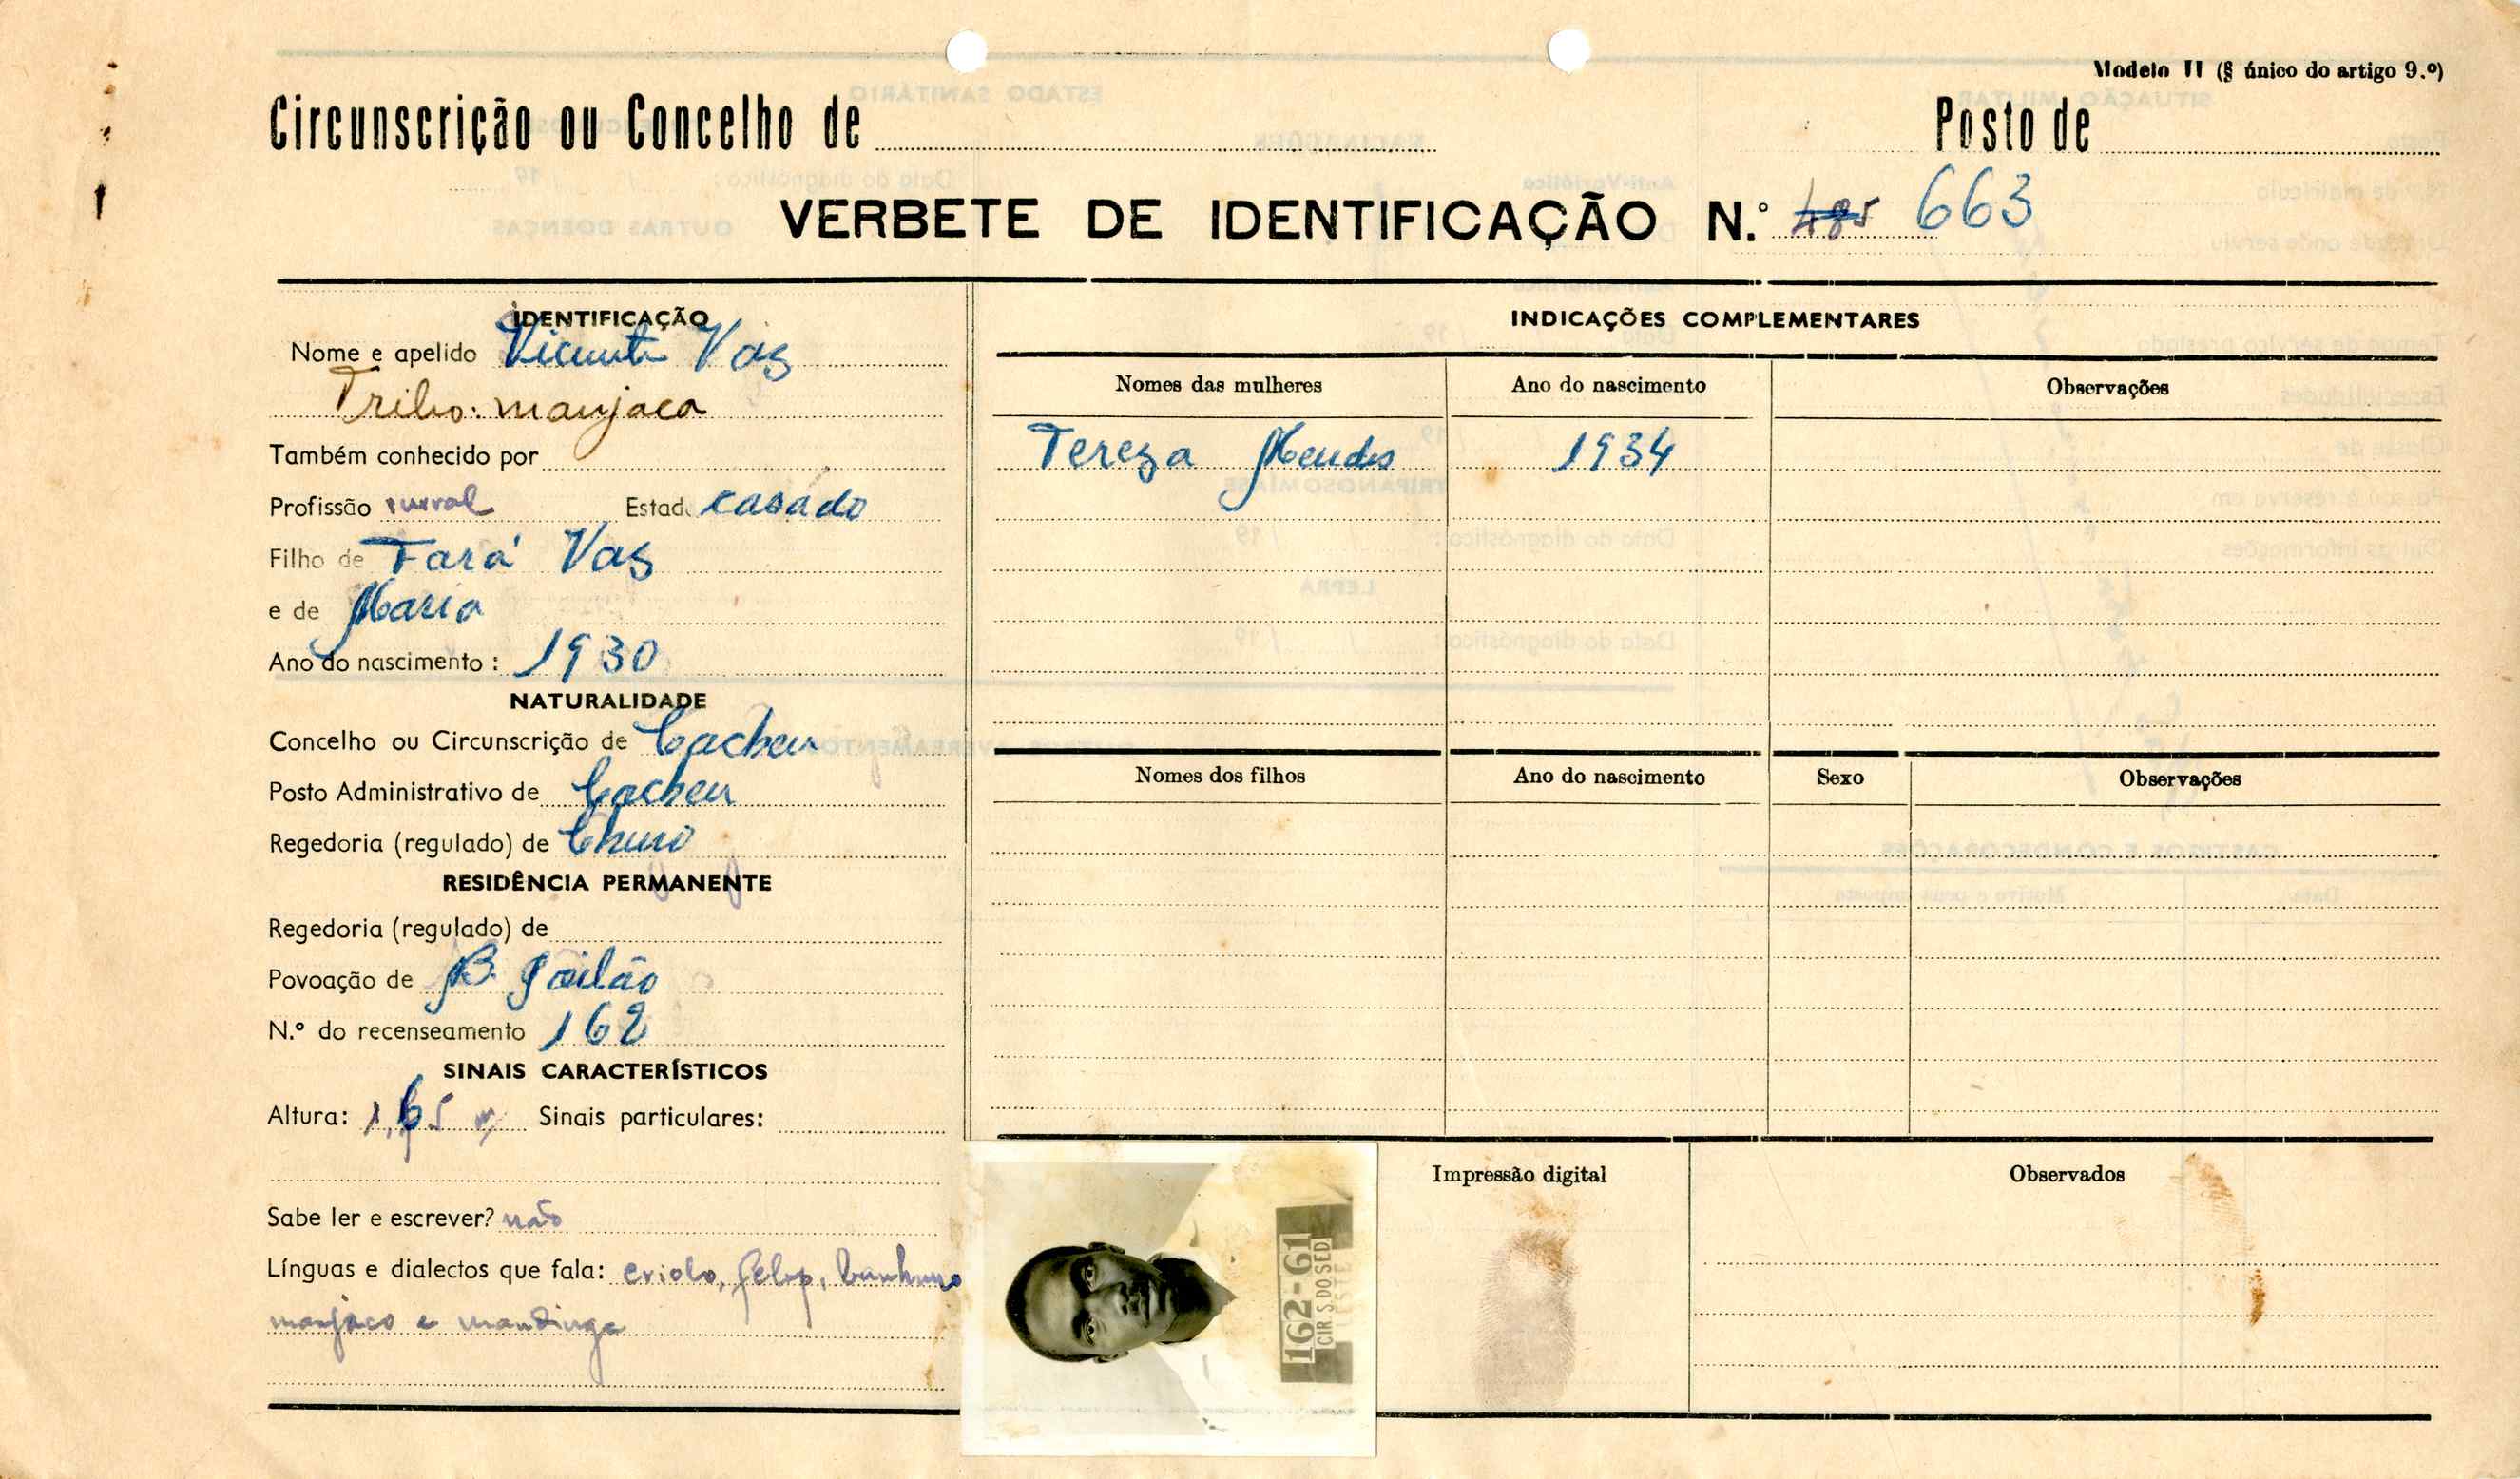 Modelo II (§ único do artigo 9.º)
Circunscrição ou Concelho de
Posto de
VERBETE DE IDENTIFICAÇÃO N.º 485 663
IDENTIFICAÇÃO
Nome e apelido Vicente Vaz
Tribo: manjaca
Também conhecido por
Profissão rurral Estad. casado
Filho de Fará Vaz
e de Maria
Ano do nascimento: 1930
NATURALIDADE
Concelho ou Circunscrição de Cacheu
Posto Administrativo de Cacheu
Regedoria (regulado) de Churo
RESIDÊNCIA PERMANENTE
Regedoria (regulado) de
Povoação de B. Poilão
N.º do recenseamento 162
SINAIS CARACTERÍSTICOS
Altura: 1,65 m Sinais particulares:
Sabe ler e escrever? não
Línguas e dialectos que fala: criolo, felup, banhuno
manjaco e mandinga
INDICAÇÕES COMPLEMENTARES
Nomes das mulheres Ano do nascimento Observações
Tereza Mendes 1934
Nomes dos filhos Ano do nascimento Sexo Observações
162-61
CIR.S.DO SED
Impressão digital
Observados